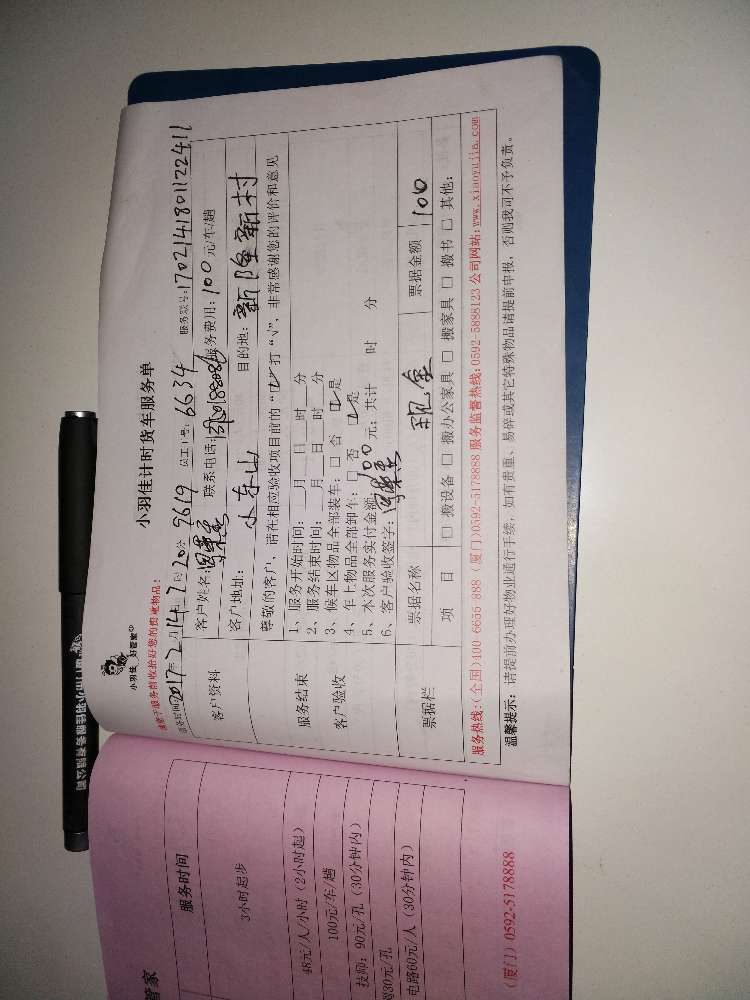 小羽佳 好管家
小羽佳计时货车服务单
请客户服务前收拾好您的贵重物品!
服务时间:2017年2月14日7时20分 9619 员工工号:6634 服务单号:170214180112241
客户资料 客户姓名: 联系电话: 服务费用:100元/车/趟
客户地址: 小东山 目的地: 新隆新村
尊敬的客户,请在相应验收项目前的“□”打“√”,非常感谢您的评价和意见
服务结束
客户验收
1、服务开始时间: 月 日 时 分
2、服务结束时间: 月 日 时 分
3、候车区物品全部装车:□ 否 ☑是
4、车上物品全部卸车:□ 否 ☑是
5、本次服务实付金额 100 元;共计 时 分
6、客户验收签字:
票据栏 票据名称 现金 票据金额 100
项 目 □ 搬设备 □ 搬办公家具 □ 搬家具 □ 搬书 □ 其他:
服务热线:(全国)400-6656-888 (厦门)0592-5178888 服务监督热线:0592-5888123 公司网站:www.xiaoyujia.com
温馨提示:请提前办理好物业通行手续,如有贵重、易碎或其它特殊物品请提前申报,否则我司不予负责。
管家
服务时间
3小时起步
48元/人/小时(2小时起)
100元/车/趟
技师:90元/孔(30分钟内)
30元/孔
电路60元/人(30分钟内)
(厦门)0592-5178888